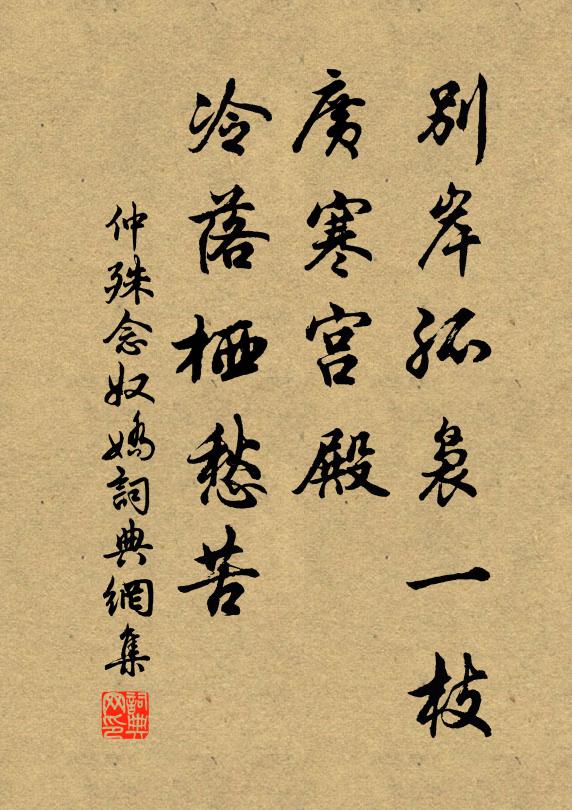 別岸孤裊一枝
廣寒宮殿
冷落栖愁苦
仲殊念奴嬌詞典網集
詞典网印